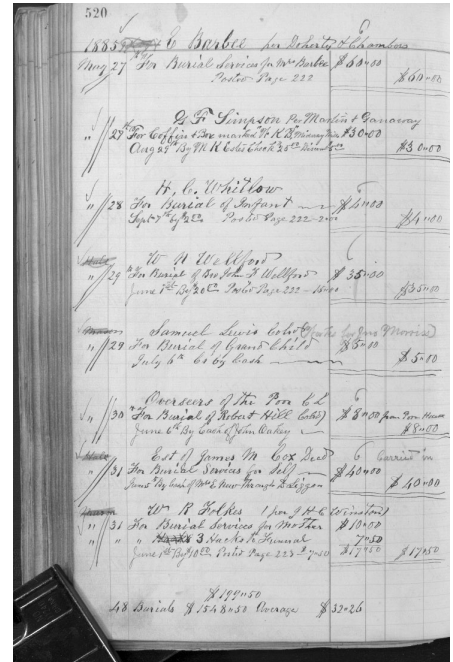 520
1883 E Barbee per Doherty & Chambers
May 27 For Burial Services for Mrs Barbee $60"00
Posted Page 222 $60"00
G F Simpson Per Martin & Danaway
" 27th For Coffin & Box marked W K $30"00
Aug 29th By M K Estes Check $30"00
H. C. Whitlow
" 28 For Burial of Infant $4"00
Sept 7th By Posted Page 222 $4"00
W N Wellford
" 29 For Burial of Bro John F Wellford $35"00
June 1st By $20 Posted Page 222 - 15"00 $35"00
Samuel Lewis Cold
" 29 For Burial of Grand Child $5"00
July 6th Cr by Cash $5"00
Overseers of the Poor
" 30 For Burial of Robert Hill $8"00 from Poor House
June 6th By Cash of John Oakey $8"00
Est of James M Cox Decd Carried in
" 31 For Burial Services for Self $40"00
$40"00
Wm R Folkes (per J H C Winston)
" 31 For Burial Services for Mother $10"00
" " 3 Hacks to Funeral 7"50
June 1st By $10 Posted Page 223 $7"50 $17"50 $17"50
$199"50
48 Burials $1548"50 Average $32"26